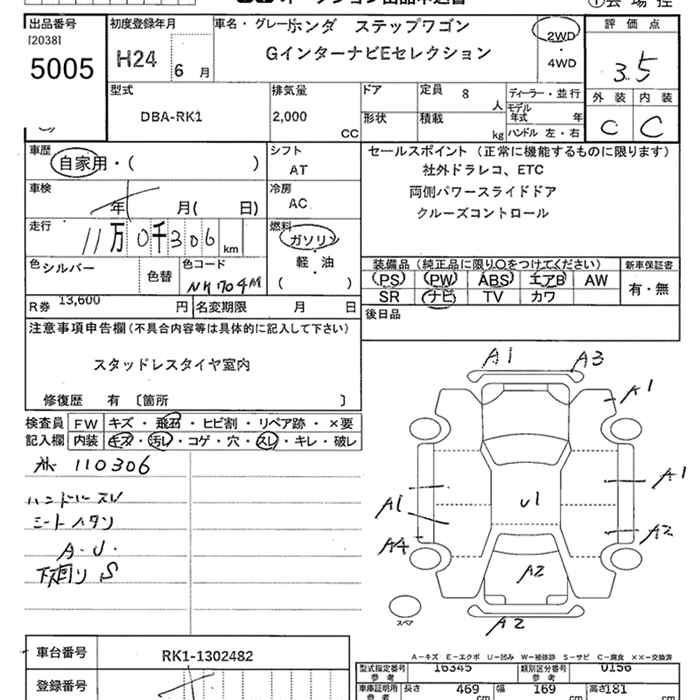 出品番号
[2038]
5005
初度登録年月
H24 6 月
車名・グレード ホンダ ステップワゴン
GインターナビEセレクション
2WD
・
4WD
評価点
3.5
外装 内装
C C
型式
DBA-RK1
排気量
2,000
CC
ドア
形状
定員 8
人
積載
kg
ディーラー・並行
モデル
年式 年
ハンドル 左・右
車歴
自家用・( )
シフト
AT
車検
年 月( 日)
冷房
AC
走行
11万0千306 km
燃料
ガソリン
・
軽・油
( )
色 シルバー
色替
色コード
NH704M
R券 13,600 円
名変期限 月 日
セールスポイント (正常に機能するものに限ります)
社外ドラレコ、ETC
両側パワースライドドア
クルーズコントロール
装備品 (純正品に限り○をつけてください)
(PS) (PW) ABS エアB AW
SR ナビ TV カワ
新車保証書
有・無
後日品
注意事項申告欄 (不具合内容等は具体的に記入して下さい)
スタッドレスタイヤ室内
修復歴 有 〔箇所 〕
検査員
記入欄
FW キズ・飛石・ヒビ割・リペア跡・×要
内装 キズ・汚レ・コゲ・穴・スレ・キレ・破レ
110306
ハンドルスレ
シートハタン
A.U.
下廻りS
A1 A3
A1
A1
A1
U1
A4
A2
A2
A2
スペア
A-キズ E-エクボ U-凹み W-補修跡 S-サビ C-腐食 ××-交換済
車台番号
RK1-1302482
登録番号
型式指定番号
参考
16345
類別区分番号
参考
0156
車庫証明用
参考
長さ 469 cm
幅 169 cm
高さ 181 cm